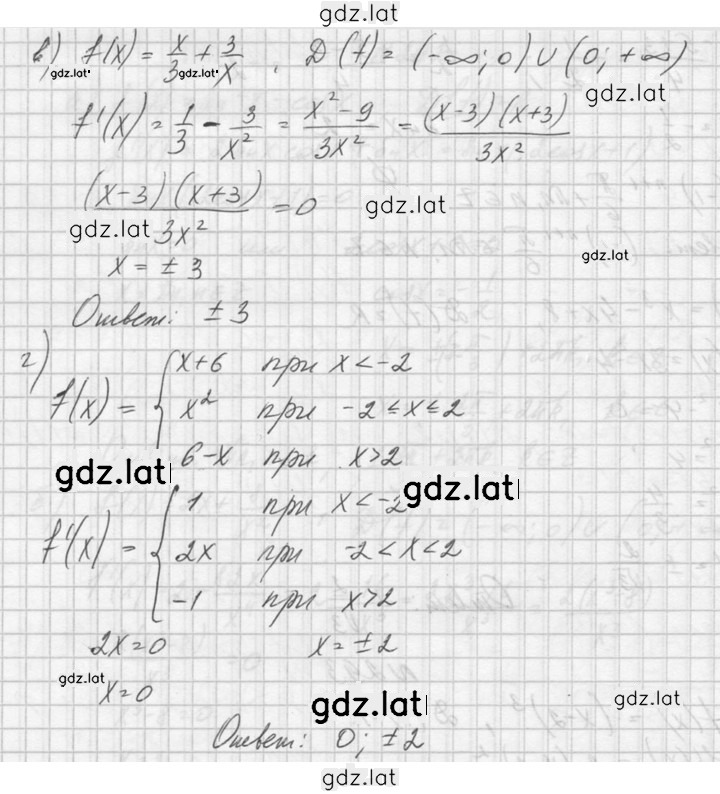 gdz.lat
в) f(x) = x/3 + 3/x , D(f) = (-∞; 0) ∪ (0; +∞)
gdz.lat gdz.lat gdz.lat
f'(x) = 1/3 - 3/x² = (x²-9)/3x² = (x-3)(x+3)/3x²
(x-3)(x+3)/3x² = 0 gdz.lat
gdz.lat
x = ±3 gdz.lat
Ответ: ±3
г)
f(x) = { x+6 при x < -2
x² при -2 ≤ x ≤ 2
6-x при x > 2
gdz.lat gdz.lat
f'(x) = { 1 при x < -2
2x при -2 < x < 2
-1 при x > 2
2x = 0 x = ±2
gdz.lat
x = 0 gdz.lat gdz.lat
Ответ: 0; ±2
gdz.lat